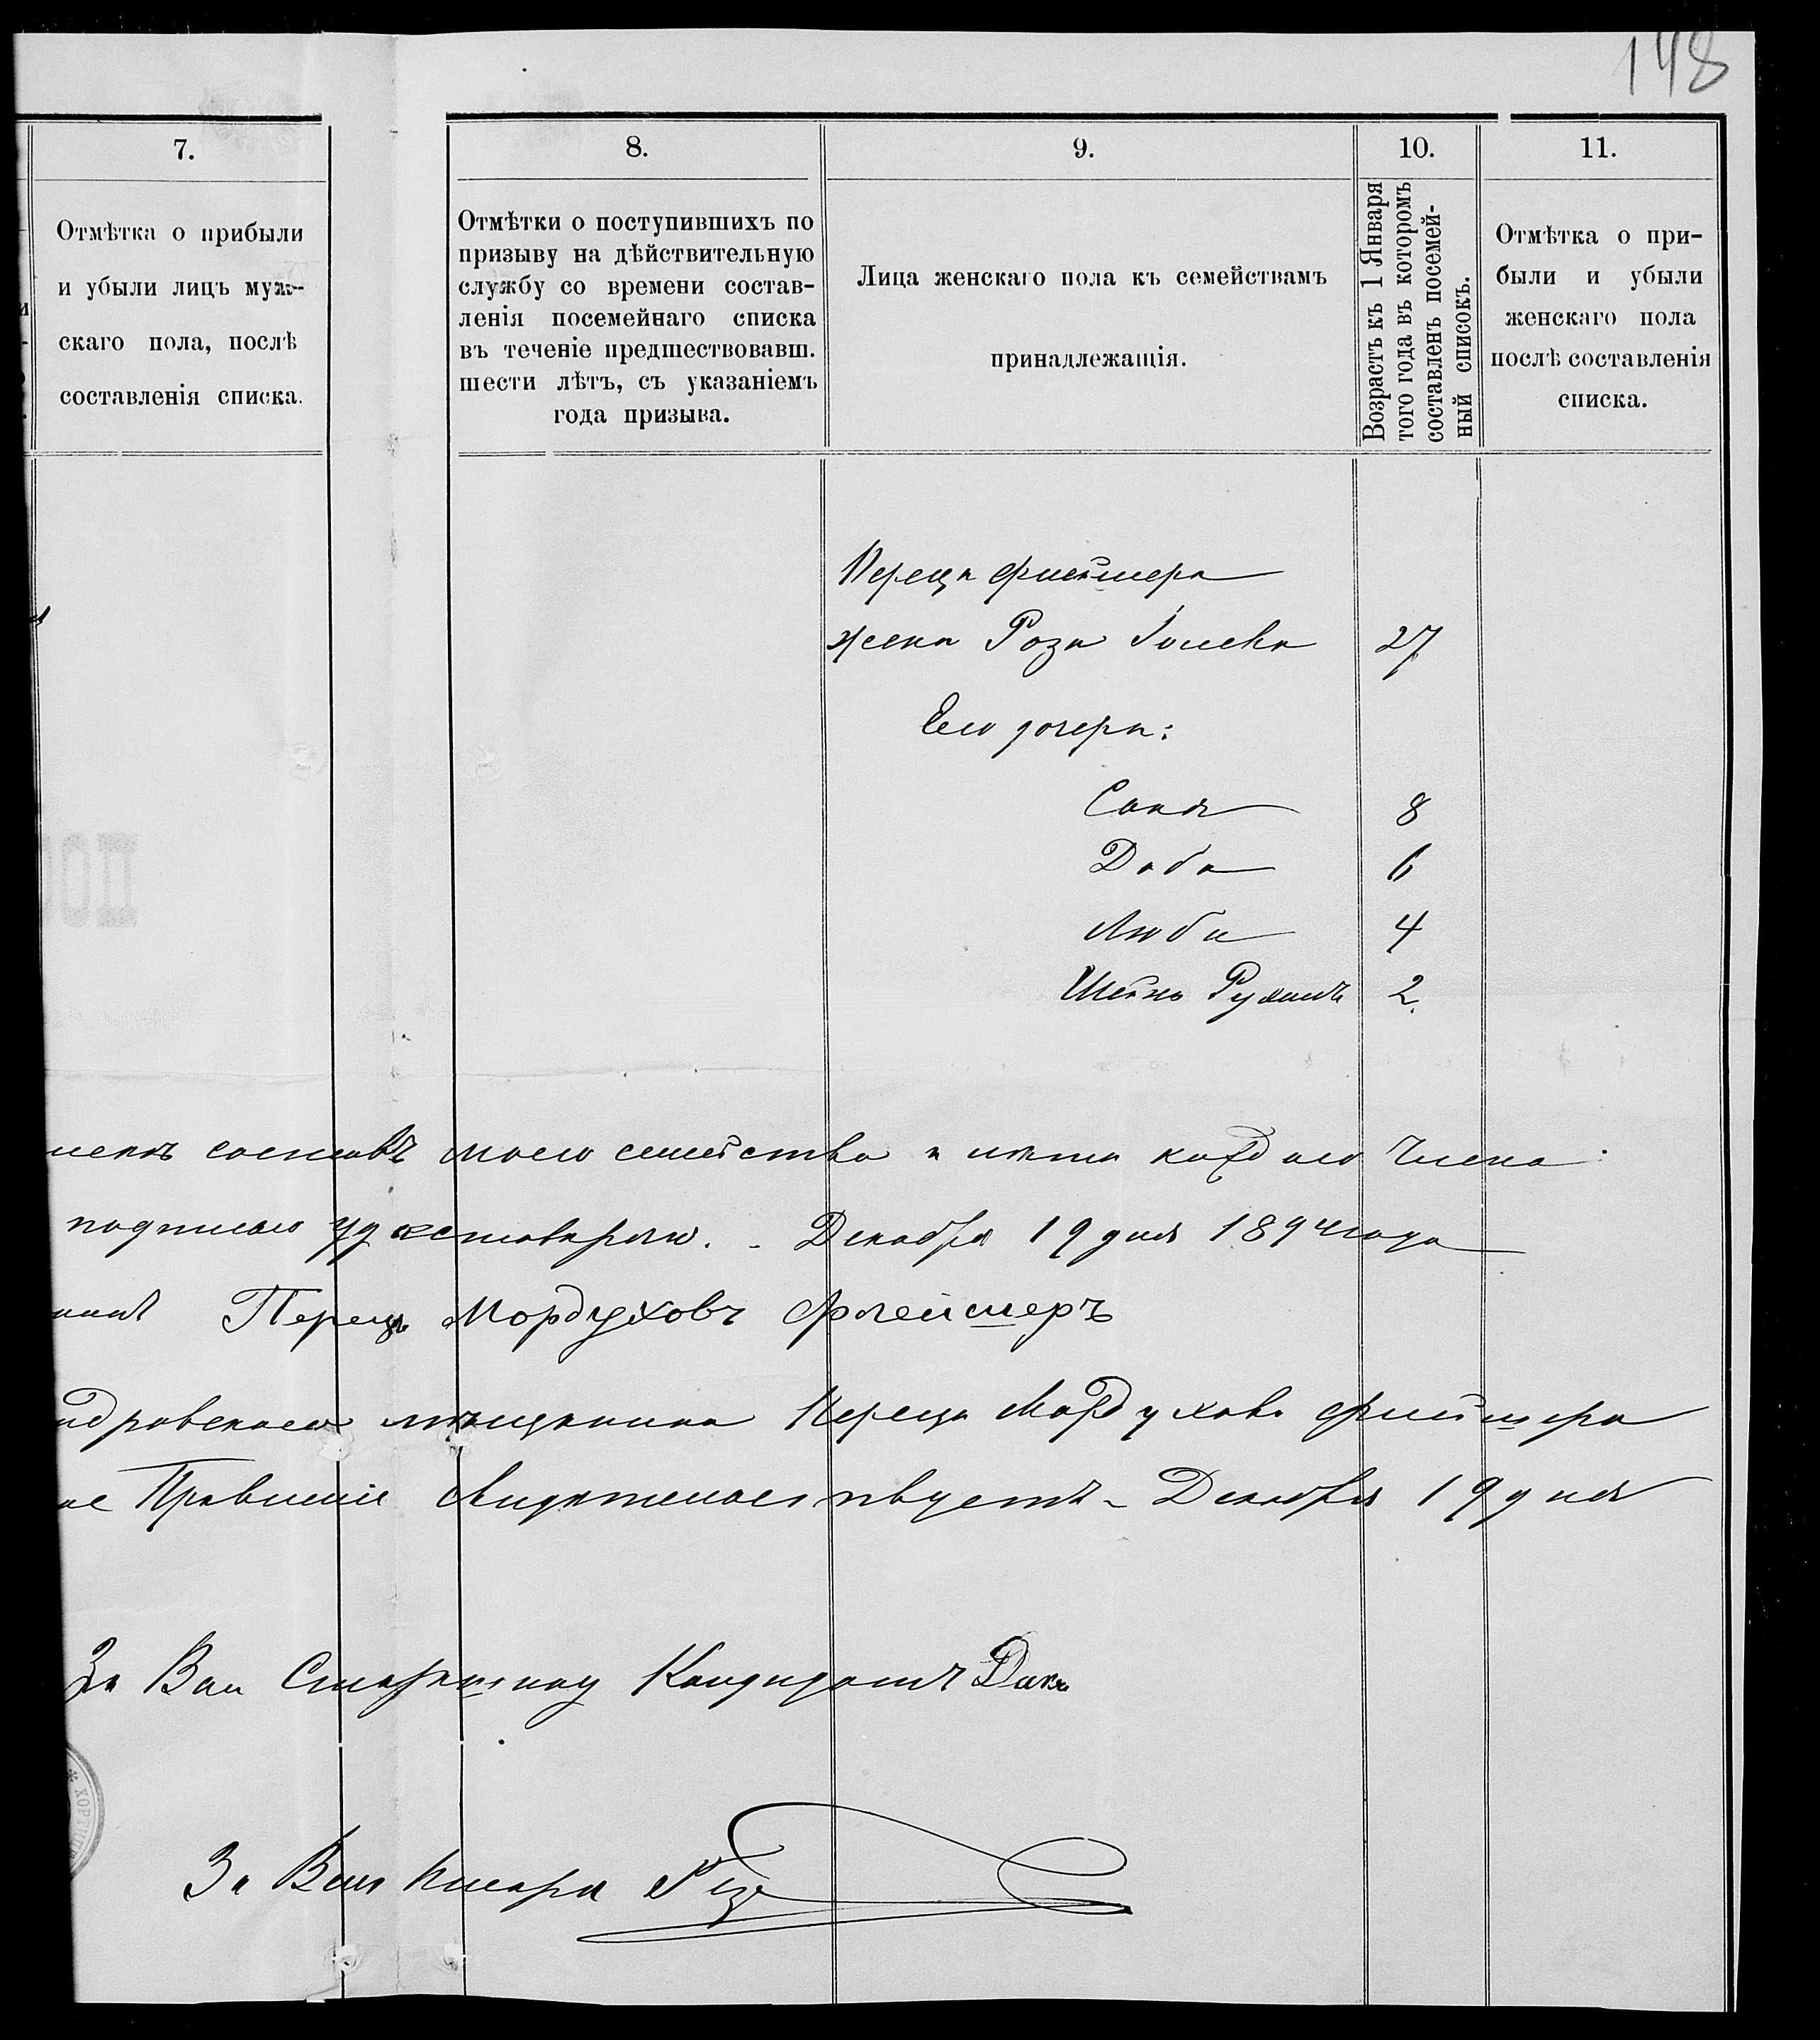 148
7.
Отмѣтка о прибыли
и убыли лицъ муж-
скаго пола, послѣ
составленія списка.
8.
Отмѣтки о поступившихъ по
призыву на дѣйствительную
службу со времени состав-
ленія посемейнаго списка
въ теченіе предшествовавш.
шести лѣтъ, съ указаніемъ
года призыва.
9.
Лица женскаго пола къ семействамъ
принадлежащія.
10.
Возрастъ къ 1 Января
того года въ которомъ
составленъ посемей-
ный списокъ.
11.
Отмѣтка о при-
были и убыли
женскаго пола
послѣ составленія
списка.
Переца Флейшера
жена Роза 27
Его дочери:
Соня 8
Доба 6
Люба 4
Шейна Рухля 2
составъ моего семейства и лѣта каждаго члена
подписью удостовѣряю. - Декабря 19 дня 1894 года
Перецъ Мордуховъ Флейшеръ
мѣщанина Переца Мордухова Флейшера
ое Правленіе свидѣтельствуетъ - Декабря 19 дня
За Вол Старшину Кандидатъ
За Вол Писаря